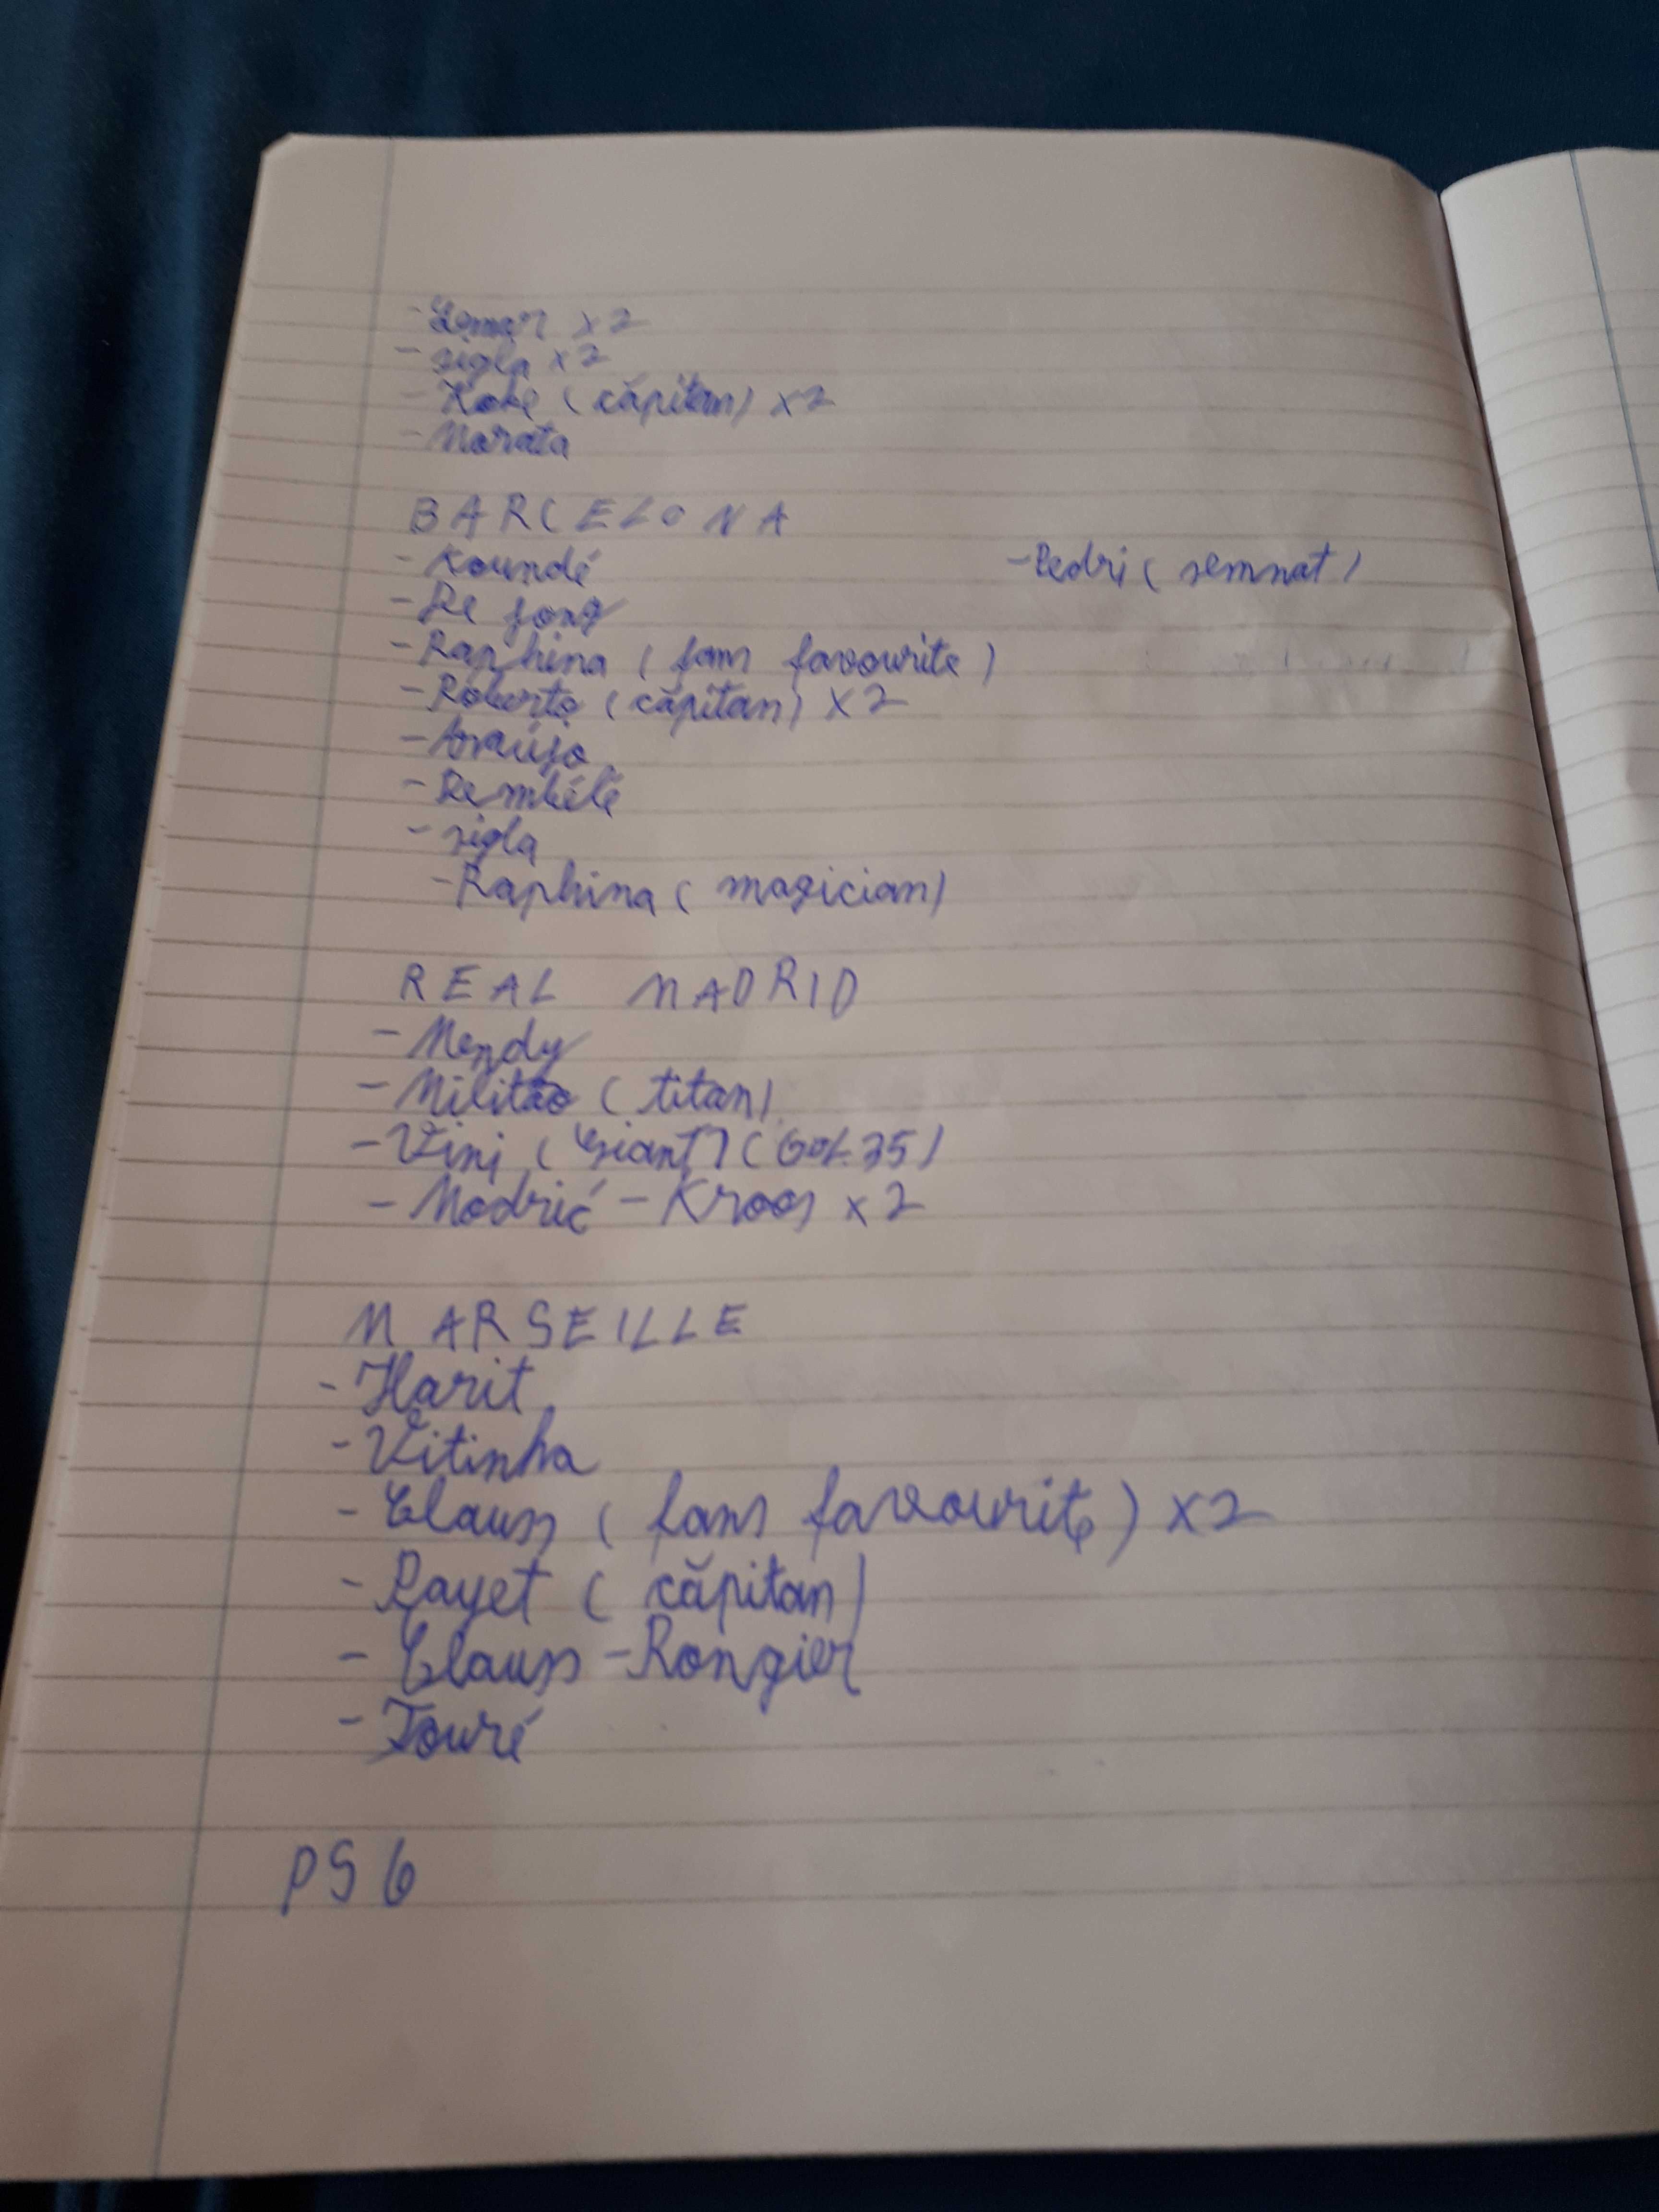 - Lemar x2
- sigla x2
- Koke (căpitan) x2
- Morata
BARCELONA
- Koundé
- Pedri (semnat)
- De Jong
- Raphina (fans favourite)
- Roberto (căpitan) x2
- Araújo
- Dembélé
- sigla
- Raphina (magician)
REAL MADRID
- Mendy
- Militão (titan)
- Vini (Giant) (Gol. 35)
- Modrić - Kroos x2
MARSEILLE
- Harit
- Vitinha
- Clauss (fans favourite) x2
- Payet (căpitan)
- Clauss - Rongier
- Touré
PSG